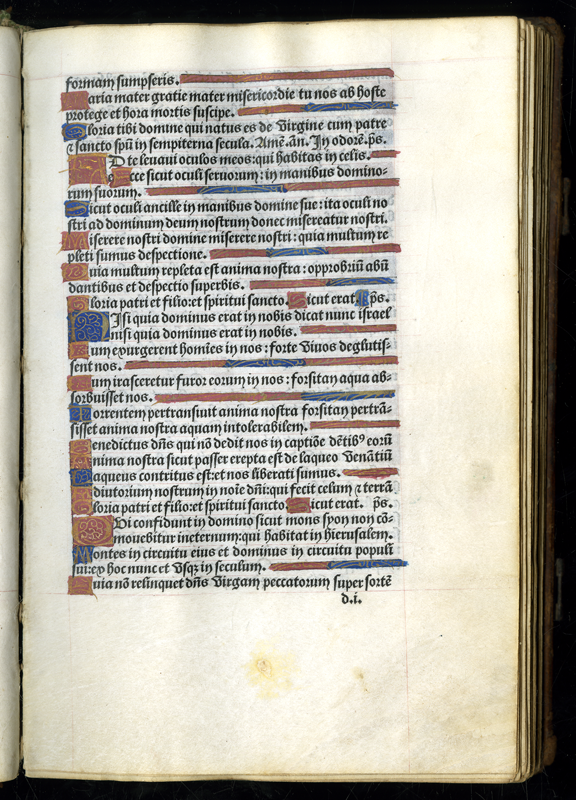 formam sumpseris.
Maria mater gratie mater misericordie tu nos ab hoste
protege et hora mortis suscipe.
Gloria tibi domine qui natus es de virgine cum patre
⁊ sancto spū in sempiterna secula. Amē. an̄. In odorē. p̄s.
AD te leuaui oculos meos: qui habitas in celis.
Ecce sicut oculi seruorum: in manibus domino-
rum suorum.
Sicut oculi ancille in manibus domine sue: ita oculi no
stri ad dominum deum nostrum donec misereatur nostri.
Miserere nostri domine miserere nostri: quia multum re
pleti sumus despectione.
Quia multum repleta est anima nostra: opprobriū abū
dantibus et despectio superbis.
Gloria patri et filio: et spiritui sancto. Sicut erat. p̄s.
NIsi quia dominus erat in nobis dicat nunc israel
nisi quia dominus erat in nobis.
Cum exurgerent homīes in nos: forte viuos deglutis-
sent nos.
Cum irasceretur furor eorum in nos: forsitan aqua ab-
sorbuisset nos.
Torrentem pertransiuit anima nostra forsitan pertrā-
sisset anima nostra aquam intolerabilem.
Benedictus dn̄s qui nō dedit nos in captiōe dētibꝰ eorū
Anima nostra sicut passer erepta est de laqueo venātiū
Laqueus contritus est: et nos liberati sumus.
Adiutorium nostrum in noīe dn̄i: qui fecit celum ⁊ terrā
Gloria patri et filio: et spiritui sancto. Sicut erat. p̄s.
QUi confidunt in domino sicut mons syon non cō-
mouebitur ineternum: qui habitat in hierusalem.
Montes in circuitu eius et dominus in circuitu populi
sui: ex hoc nunc et vsqꝫ in seculum.
Quia nō relinquet dn̄s virgam peccatorum super sortē
d.i.